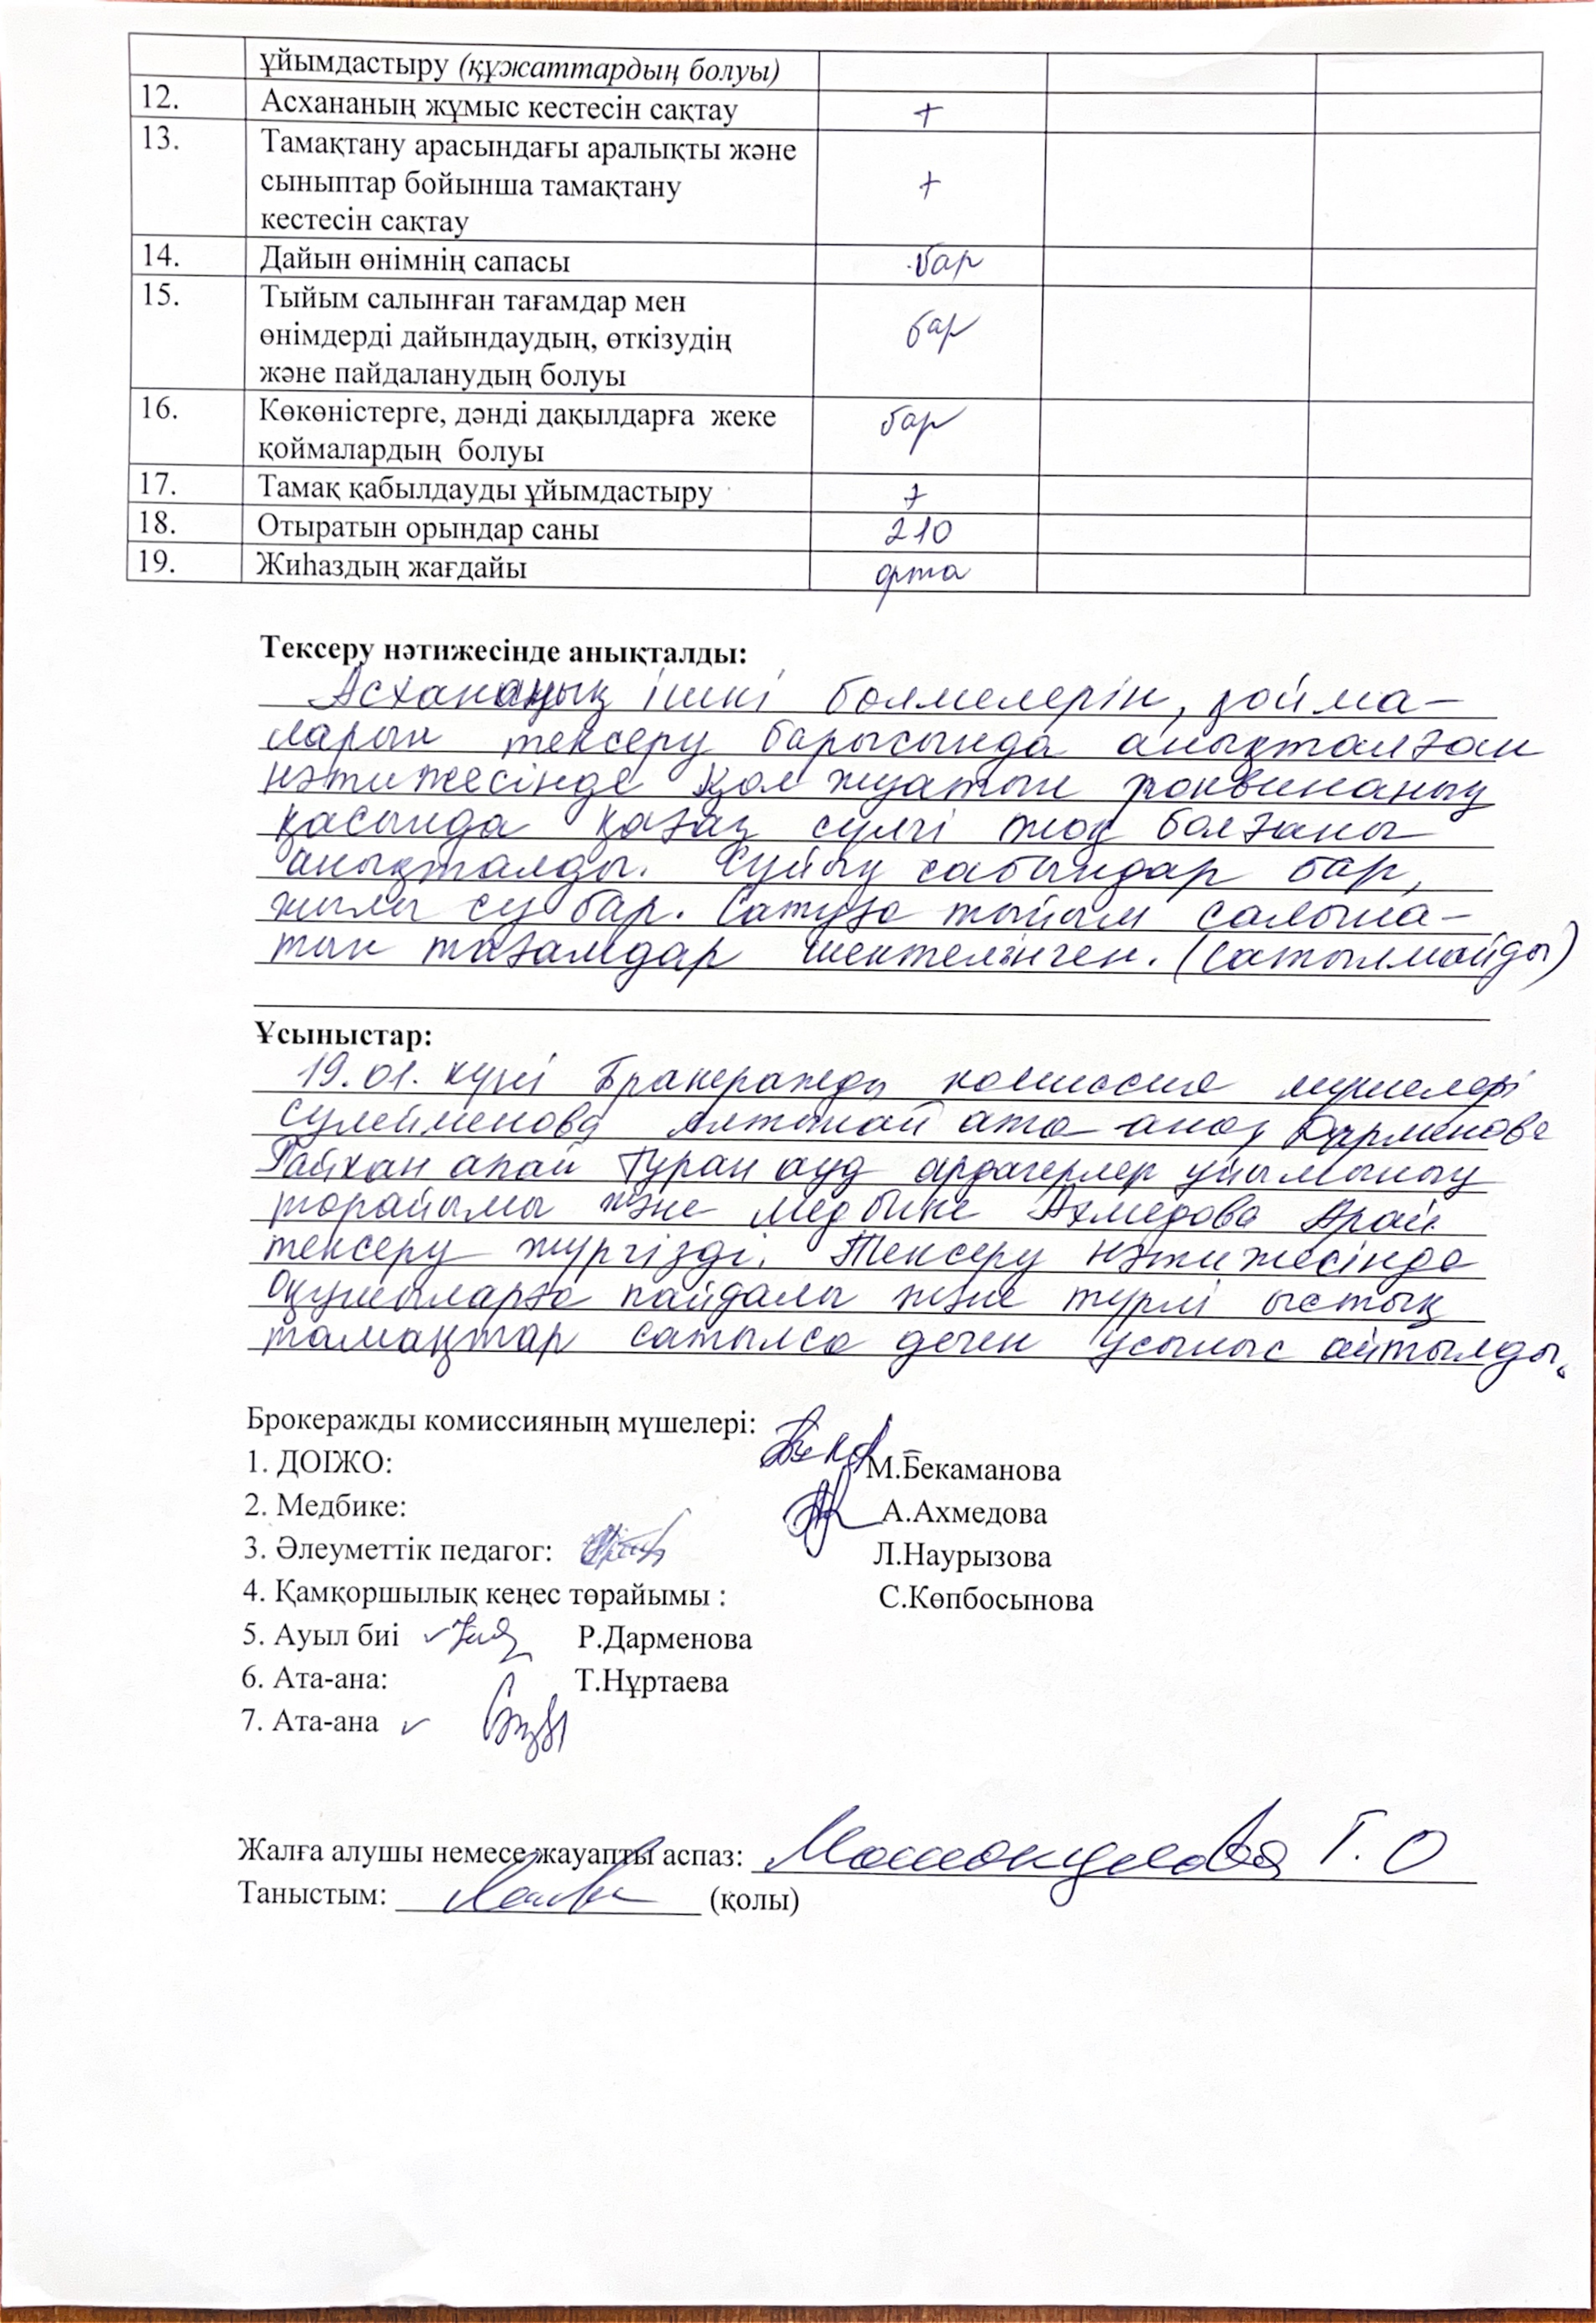 ұйымдастыру (құжаттардың болуы)
12. Асхананың жұмыс кестесін сақтау +
13. Тамақтану арасындағы аралықты және
сыныптар бойынша тамақтану +
кестесін сақтау
14. Дайын өнімнің сапасы бар
15. Тыйым салынған тағамдар мен
өнімдерді дайындаудың, өткізудің бар
және пайдаланудың болуы
16. Көкөністерге, дәнді дақылдарға жеке бар
қоймалардың болуы
17. Тамақ қабылдауды ұйымдастыру +
18. Отыратын орындар саны 210
19. Жиһаздың жағдайы орта
Тексеру нәтижесінде анықталды:
Асхананың ішкі бөлмелерін, қойма-
ларын тексеру барысында анықталған
нәтижесінде қол жуатын раковинаның
қасында қағаз сүлгі жоқ болғаны
анықталды. Сұйық сабындар бар,
жылы су бар. Сатуға тыйым салына-
тын тағамдар шектелінген. (сатылмайды)
Ұсыныстар:
19.01. күні Бракеражды комиссия мүшелері
Сулейменова Алтынай ата-ана, Дарменова
Райхан апай Тұран ауд ардагерлер ұйымының
төрайымы және медбике Ахмедова Арай
тексеру жүргізді. Тексеру нәтижесінде
Оқушыларға пайдалы және түрлі ыстық
тамақтар сатылса деген ұсыныс айтылды.
Брокеражды комиссияның мүшелері:
1. ДОІЖО: М.Бекаманова
2. Медбике: А.Ахмедова
3. Әлеуметтік педагог: Л.Наурызова
4. Қамқоршылық кеңес төрайымы : С.Көпбосынова
5. Ауыл биі Р.Дарменова
6. Ата-ана: Т.Нұртаева
7. Ата-ана
Жалға алушы немесе жауапты аспаз: Г. О
Таныстым: (қолы)